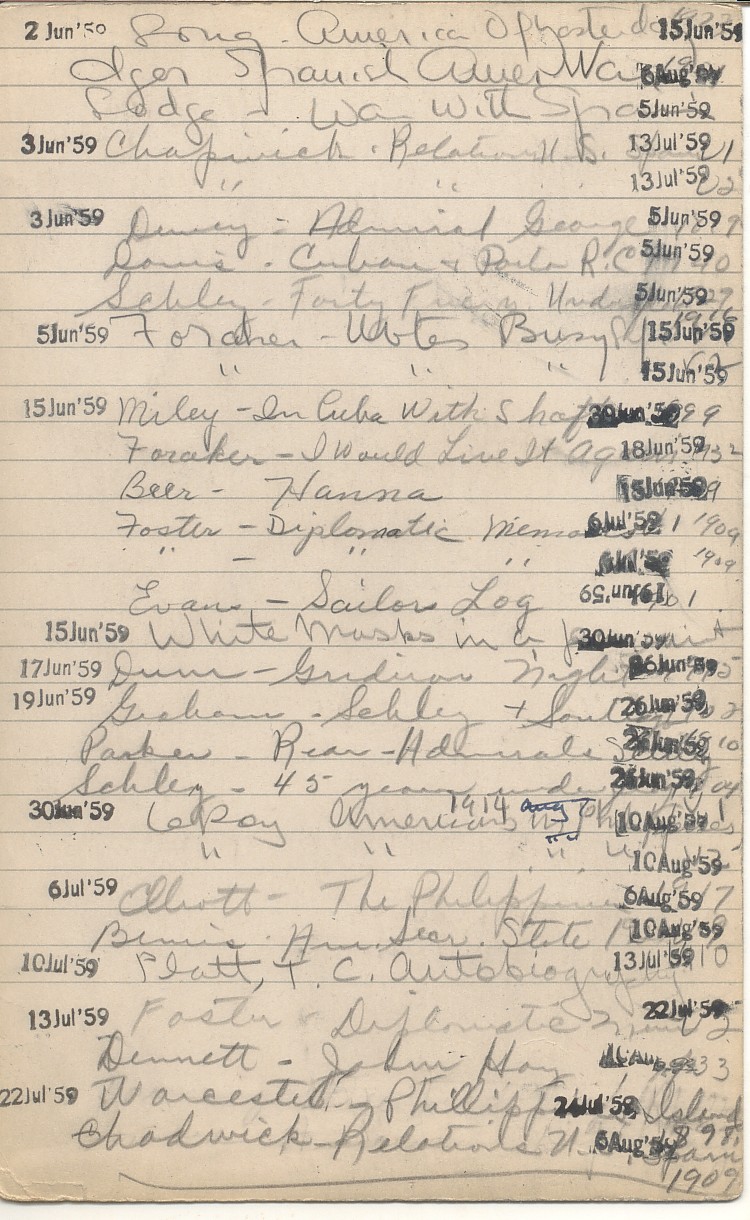 2 Jun'59 Long - America Of Yesterday 15Jun'59
Alger Spanish Amer War 6Aug'59
Lodge - War With Spain 5Jun'59
3Jun'59 Chadwick - Relations U.S. Spain V1 13Jul'59
" " " V2 13Jul'59
3Jun'59 Dewey - Admiral George 5Jun'59
Davis - Cuban & Porto R.C 5Jun'59
Schley - Forty Under 5Jun'59
5Jun'59 Foraker - Notes Busy 1916 15Jun'59
" " " V2 15Jun'59
15Jun'59 Miley - In Cuba With Shafter 30Jun'59
Foraker - I Would Live It Again 1932 18Jun'59
Beer - Hanna 15Jun'59
Foster - Diplomatic Memoirs 1 1909 6Jul'59
" - " " 1909
Evans - Sailors Log 1901 19Jun'59
15Jun'59 White Masks in a 30Jun'59
17Jun'59 Dunn - Gridiron Nights 26Jun'59
19Jun'59 Graham - Schley + Santiago 26Jun'59
Parker - Rear-Admirals 26Jun'59
Schley - 45 years under 26Jun'59
30Jun'59 LeRoy Americans in Philippines 1 1914 Aug 10Aug'59
" " " " 10Aug'59
6Jul'59 Elliott - The Philippines 6Aug'59
Bemis - Am. Secr. State 10Aug'59
10Jul'59 Platt, T. C. Autobiography 13Jul'59
13Jul'59 Foster - Diplomatic Mem V2 22Jul'59
Dennett - John Hay 1933
22Jul'59 Worcester - Phillipp Island 1898 24Jul'59
Chadwick - Relations U.S. Spain 6Aug'59
1909